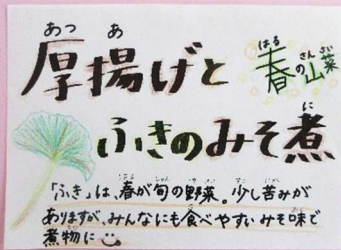 あつ あ
厚揚げと
はる さんさい
春の山菜
に
ふきのみそ煮
「ふき」は、春が旬の野菜。少し苦みが
ありますが、みんなにも食べやすいみそ味で
煮物に